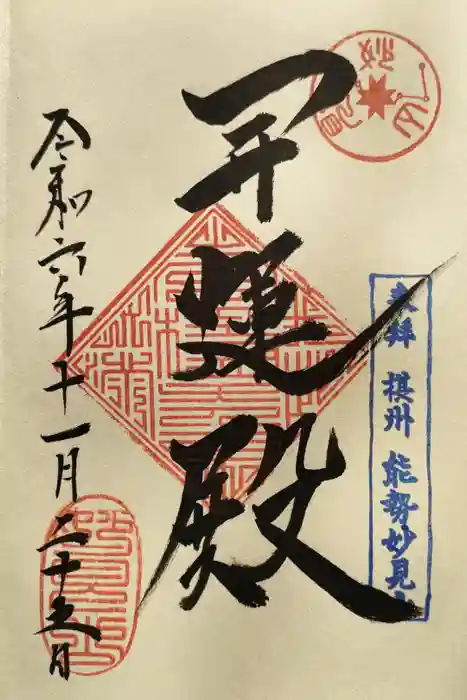 奉拝 摂州 能勢妙見山
開運殿
令和六年十一月二十五日